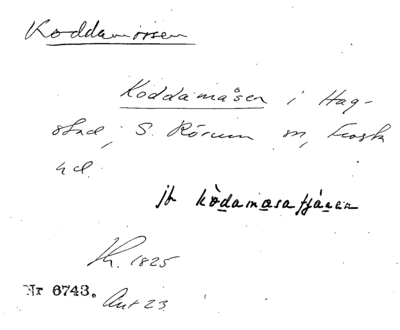 Koddamossen
Koddamåsen i Hag-
stad, S. Rörum sn, Frosta
hd.
jb kòdamasafjáɹen
Kr. 1825
Nr 6743. Ant 23